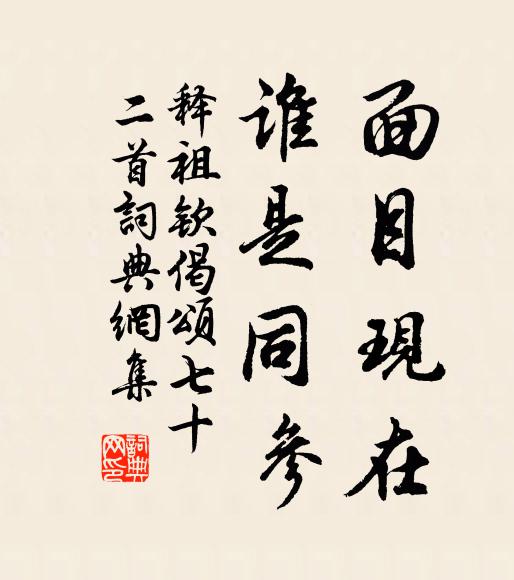 面目現在
誰是同參
释祖欽偈頌七十
二首詞典網集
詞典
网印